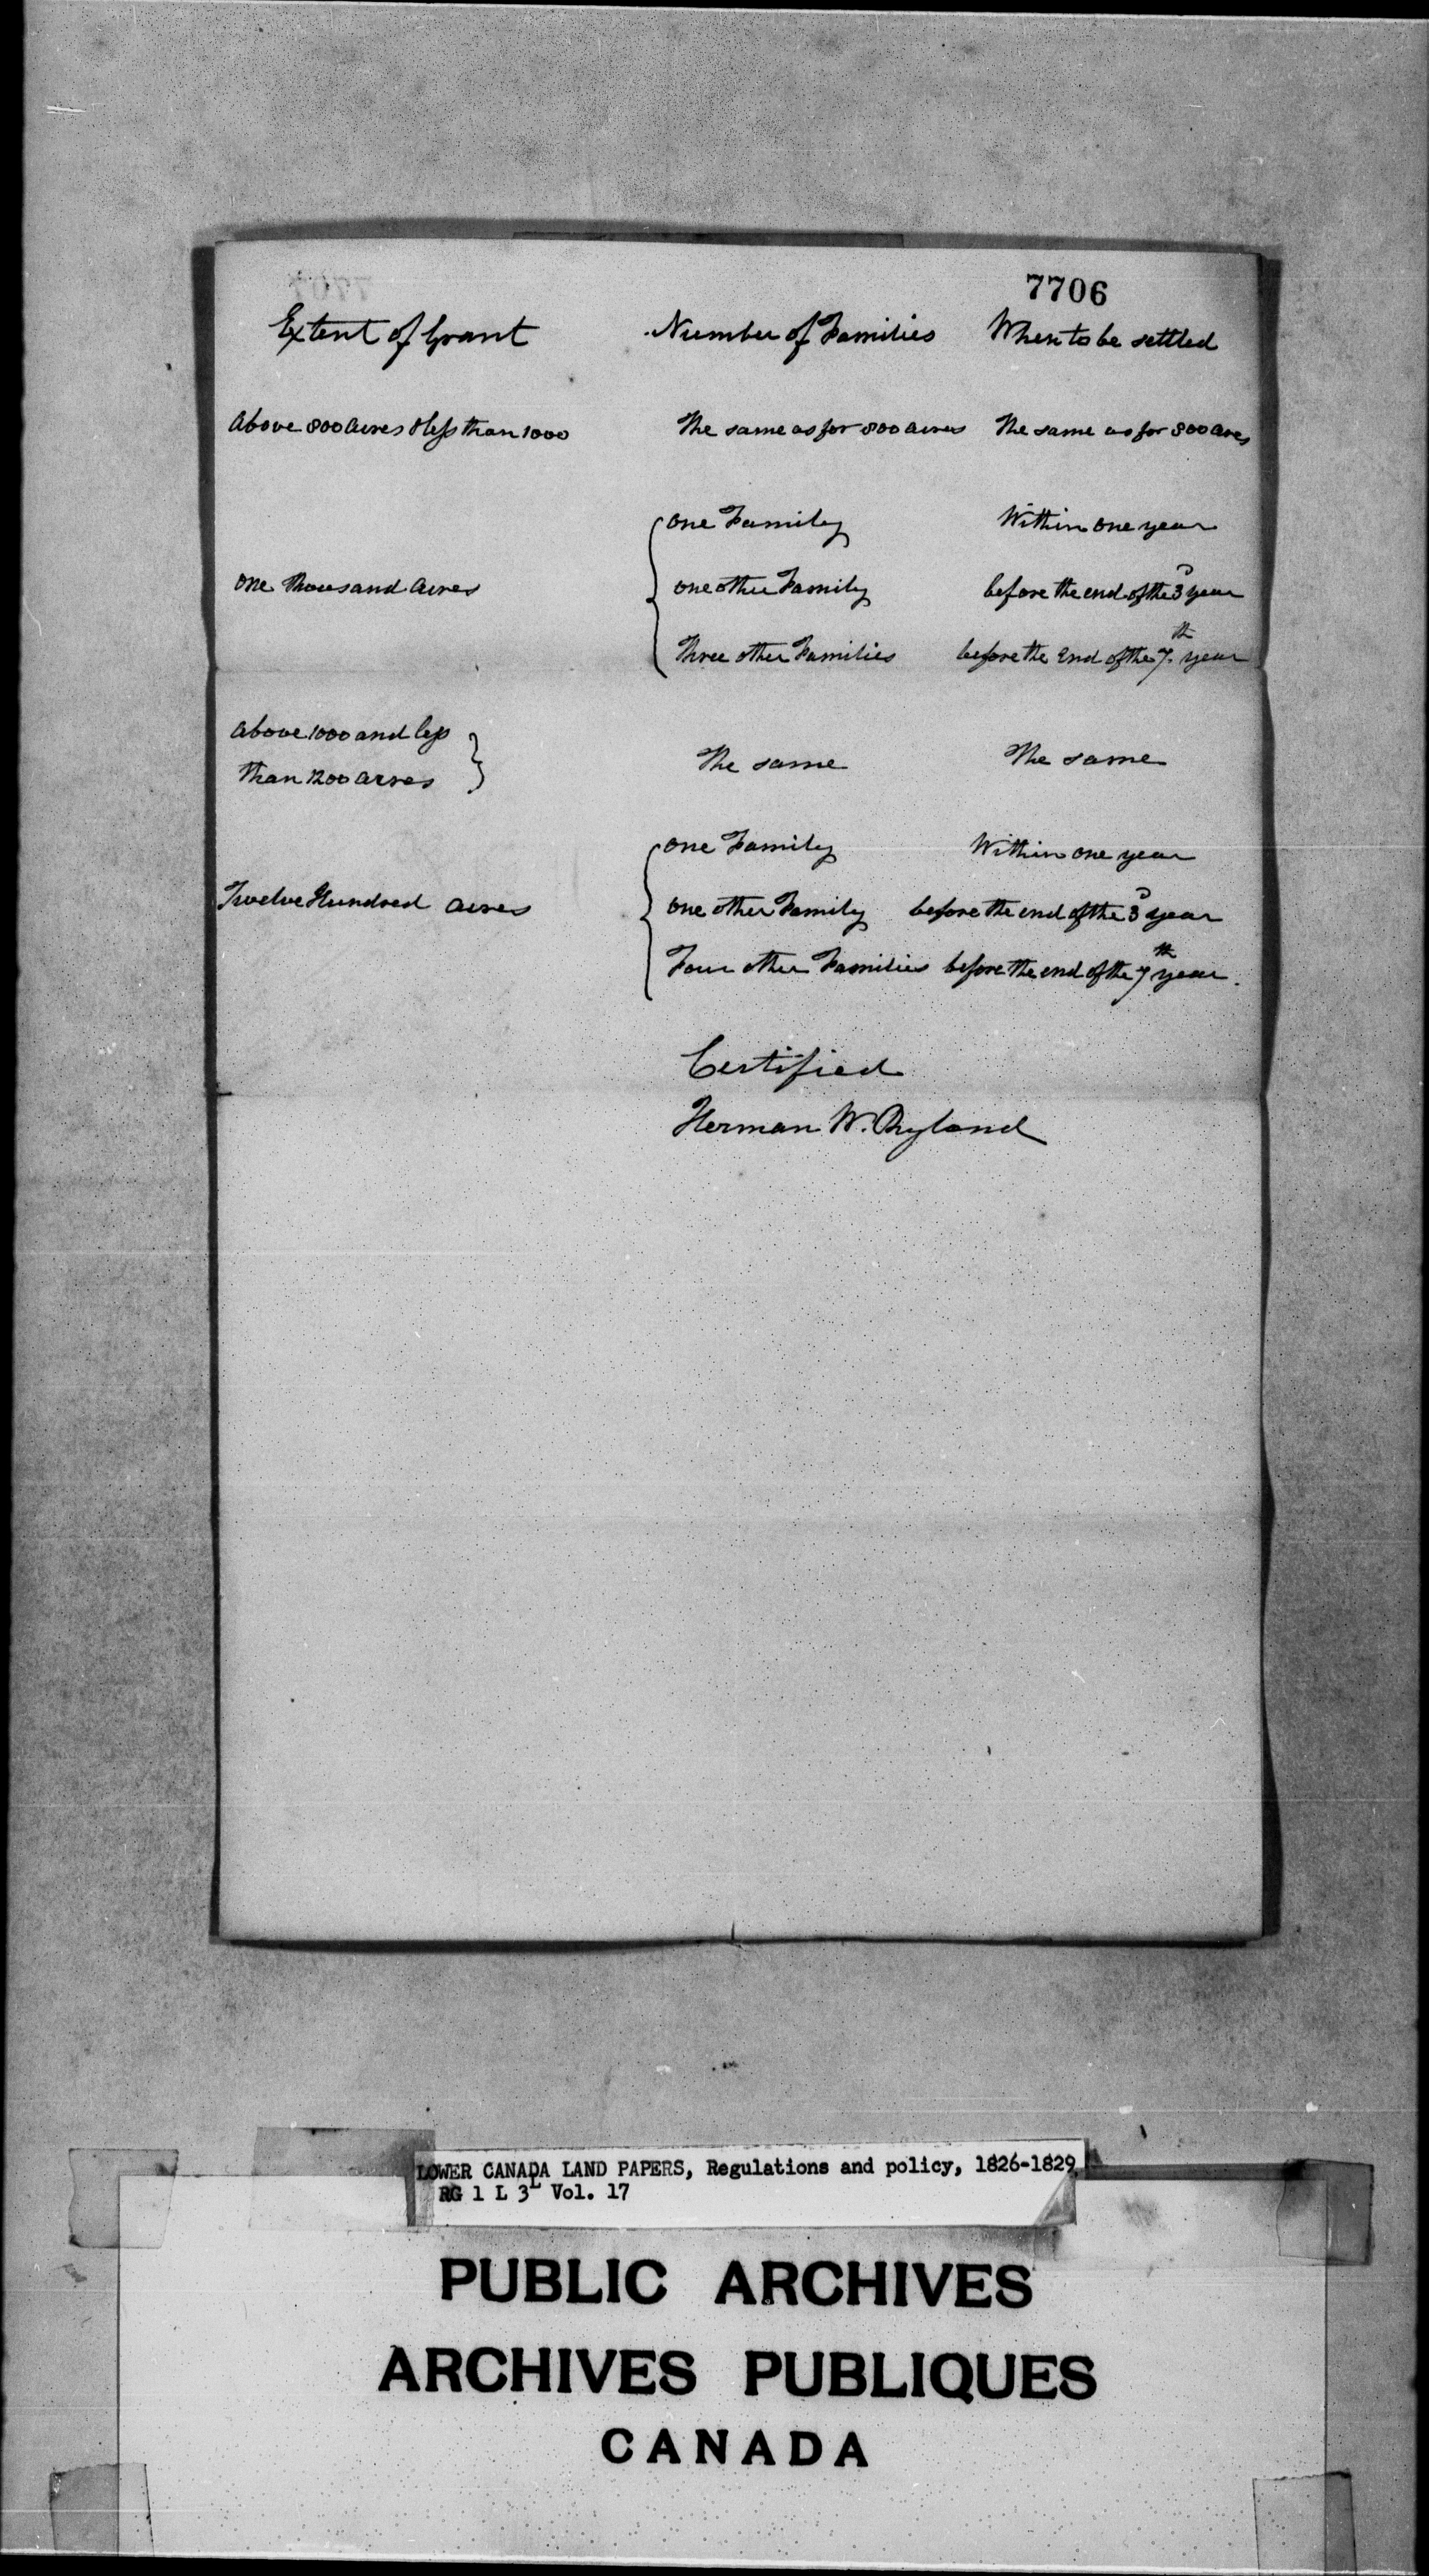 7706
Extent of Grant Number of Families When to be settled
Above 800 Acres & less than 1000 The same as for 800 acres The same as for 800 Acres
One Family Within one year
One thousand Acres One other Family before the end of the 3d year
Three other Families before the End of the 7th year
Above 1000 and less
than 1200 acres The same The same
One Family Within one year
Twelve Hundred Acres One other Family before the end of the 3d year
Four other Families before the end of the 7th year.
Certified
Herman W. Ryland
LOWER CANADA LAND PAPERS, Regulations and policy, 1826-1829
RG 1 L 3L Vol. 17
PUBLIC ARCHIVES
ARCHIVES PUBLIQUES
CANADA